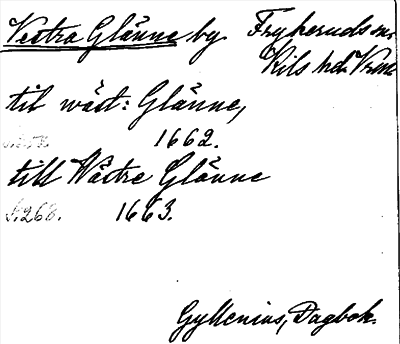 Vestra Glänne by Fryksruds sn,
Kils hd. Vrml
til wäst: Glänne,
1662.
till Wästre Glänne
s. 268. 1663.
Gyllenius, Dagbok.